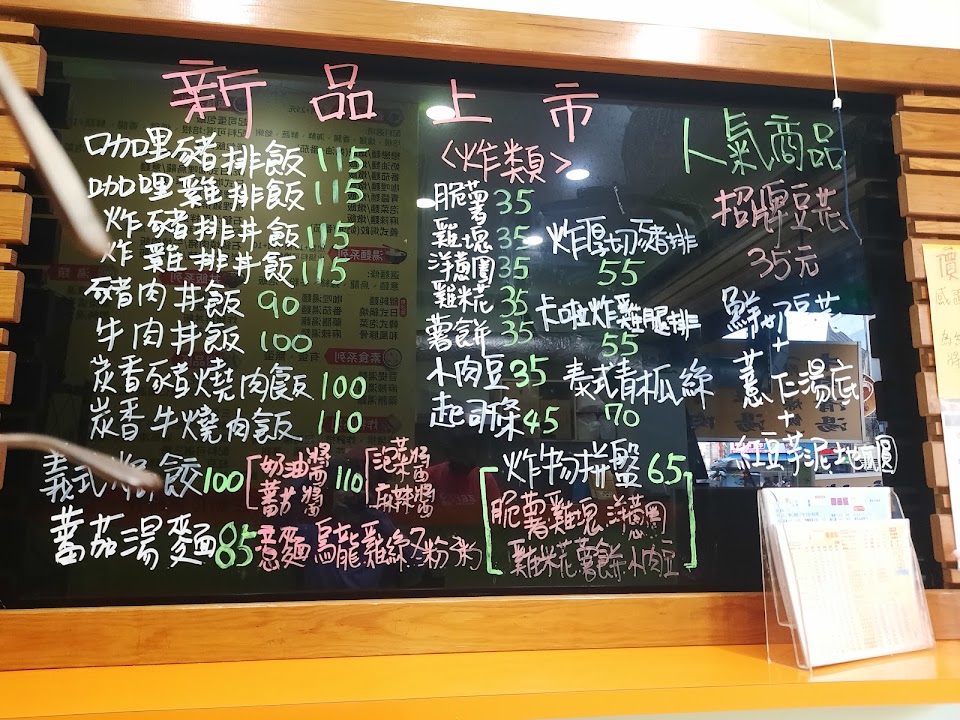 新品上市
咖哩豬排飯 115
咖哩雞排飯 115
炸豬排丼飯 115
炸雞排丼飯 115
豬肉丼飯 90
牛肉丼飯 100
炭香豬燒肉飯 100
炭香牛燒肉飯 110
義式粄餃 100 [奶油醬 蕃茄醬] 110 [泡菜醬 麻辣醬]
蕃茄湯麵 85 意麵 烏龍 雞絲 冬粉
<炸類>
脆薯 35
雞塊 35
洋蔥圈 35
雞米花 35
薯餅 35
小肉豆 35
起司條 45
炸厚切豬排
55
卡啦炸雞腿排
55
泰式青木瓜絲
70
炸物拼盤 65
脆薯 雞塊 洋蔥圈
雞米花 薯餅 小肉豆
人氣商品
招牌豆花
35元
鮮奶豆花
+
薏仁湯底
+
紅豆芋泥地瓜圓
素食系列
湯麵系列